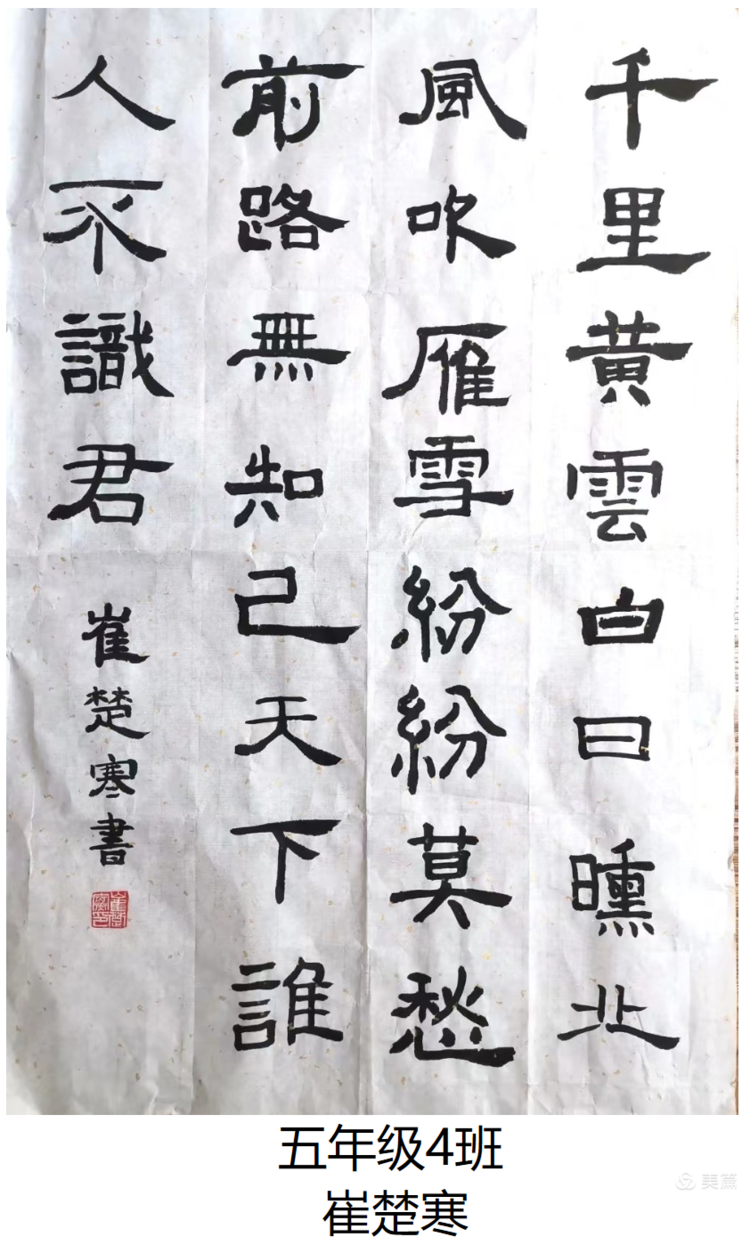 千里黄雲白日曛北
風吹雁雪紛紛莫愁
前路無知己天下誰
人不識君
崔楚寒書
五年级4班
崔楚寒
美篇